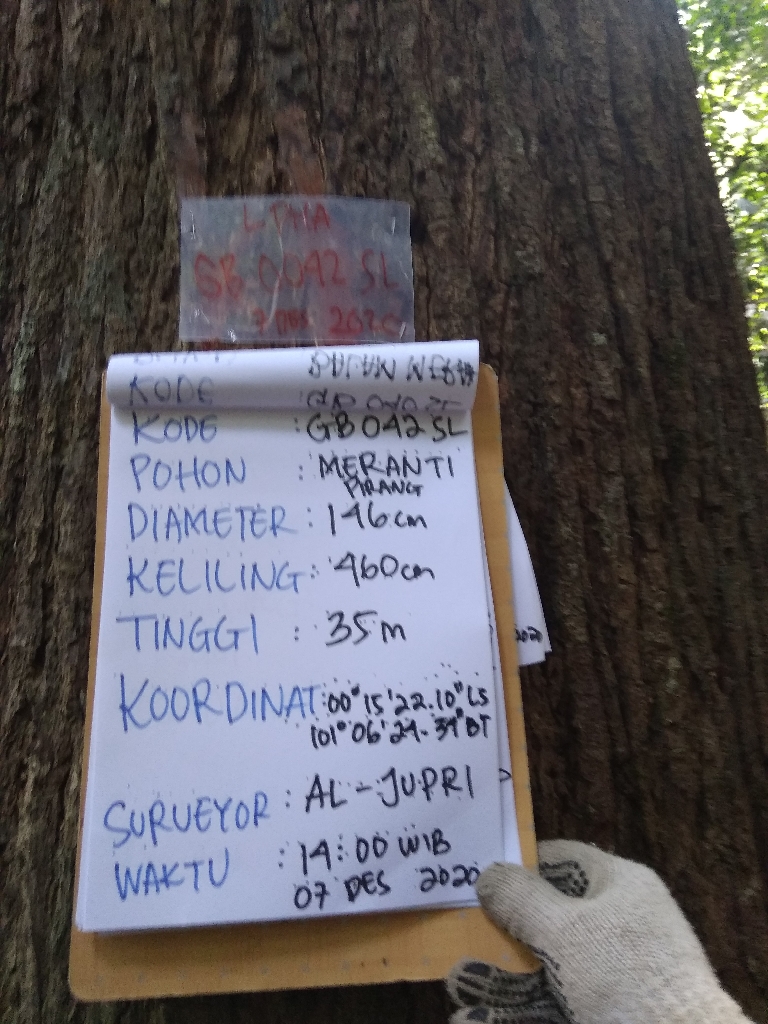 SB 0042 SL
7 DES 2020
KODE
KODE : GB 042 SL
POHON : MERANTI
PIRANG
DIAMETER : 146 cm
KELILING : 460 cm
TINGGI : 35 m
KOORDINAT : 00° 15' 22.10" LS
101° 06' 24.34" BT
SURVEYOR : AL - JUPRI
WAKTU : 14:00 WIB
07 DES 2020
2020